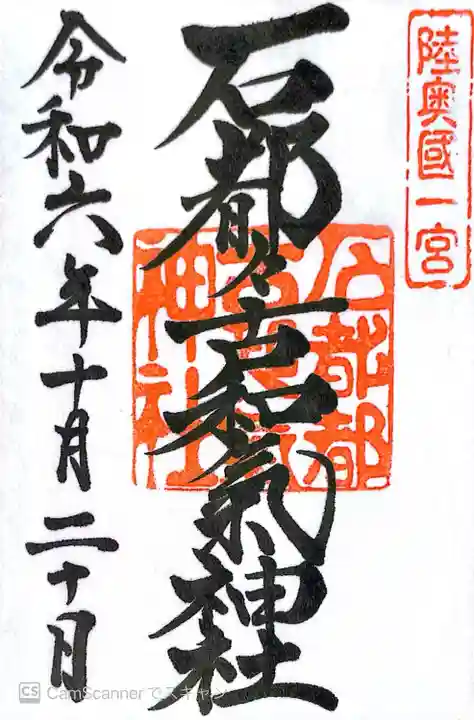 陸奥國一宮
石都々古和氣神社
石都都
古和氣
神社
令和六年十月二十日
CS CamScanner でスキャン